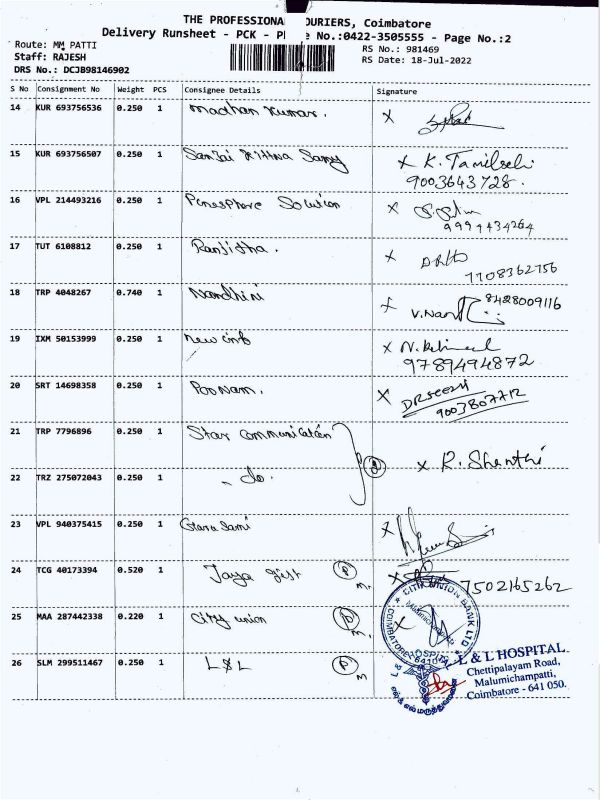 THE PROFESSIONAL COURIERS, Coimbatore
Delivery Runsheet - PCK - Ph e No.:0422-3505555 - Page No.:2
Route: MM PATTI RS No.: 981469
Staff: RAJESH RS Date: 18-Jul-2022
DRS No.: DCJB98146902
S No Consignment No Weight PCS Consignee Details Signature
14 KUR 693756536 0.250 1 Madhan Kumar. X
15 KUR 693756507 0.250 1 Sanjai Samy X K. Tamilselvi
9003643728.
16 VPL 214493216 0.250 1 Solution X
9994434264
17 TUT 6108812 0.250 1 Ranjitha. X
7708362756
18 TRP 4048267 0.740 1 Nandhini X V.Nandhini 8428009116
19 IXM 50153999 0.250 1 new info X N.
9789494872
20 SRT 14698358 0.250 1 Poonam. X
9003807712
21 TRP 7796896 0.250 1 Star Communication X R. Shanthi
22 TRZ 275072043 0.250 1 - do.
23 VPL 940375415 0.250 1 Sami X
24 TCG 40173394 0.520 1 Jaya gist P m. X 7502165262
25 MAA 287442338 0.220 1 City union P m. X
CITY UNION BANK LTD
COIMBATORE
26 SLM 299511467 0.250 1 L&L P m
L & L HOSPITAL
Chettipalayam Road,
Malumichampatti,
Coimbatore - 641 050.